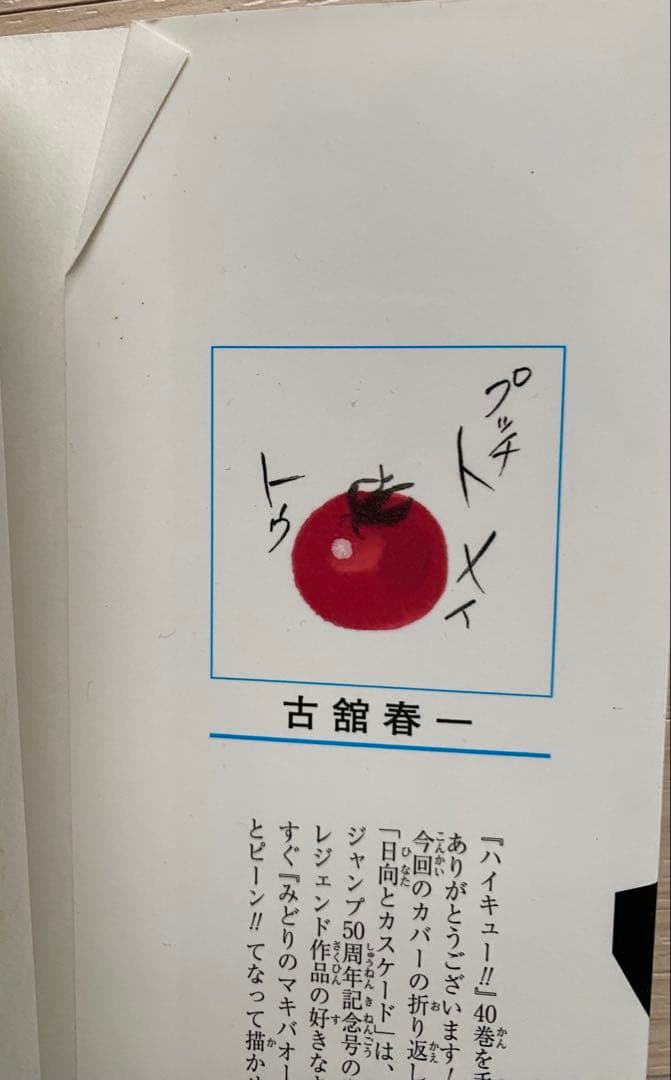 プッチ
トメィ
トゥ
古舘春一
『ハイキュー!!』40巻を
ありがとうございます!
今回のカバーの折り返し
「日向とカスケード」は、
ジャンプ50周年記念号の
レジェンド作品の好きな
すぐ『みどりのマキバオー
とピーン!!てなって描か